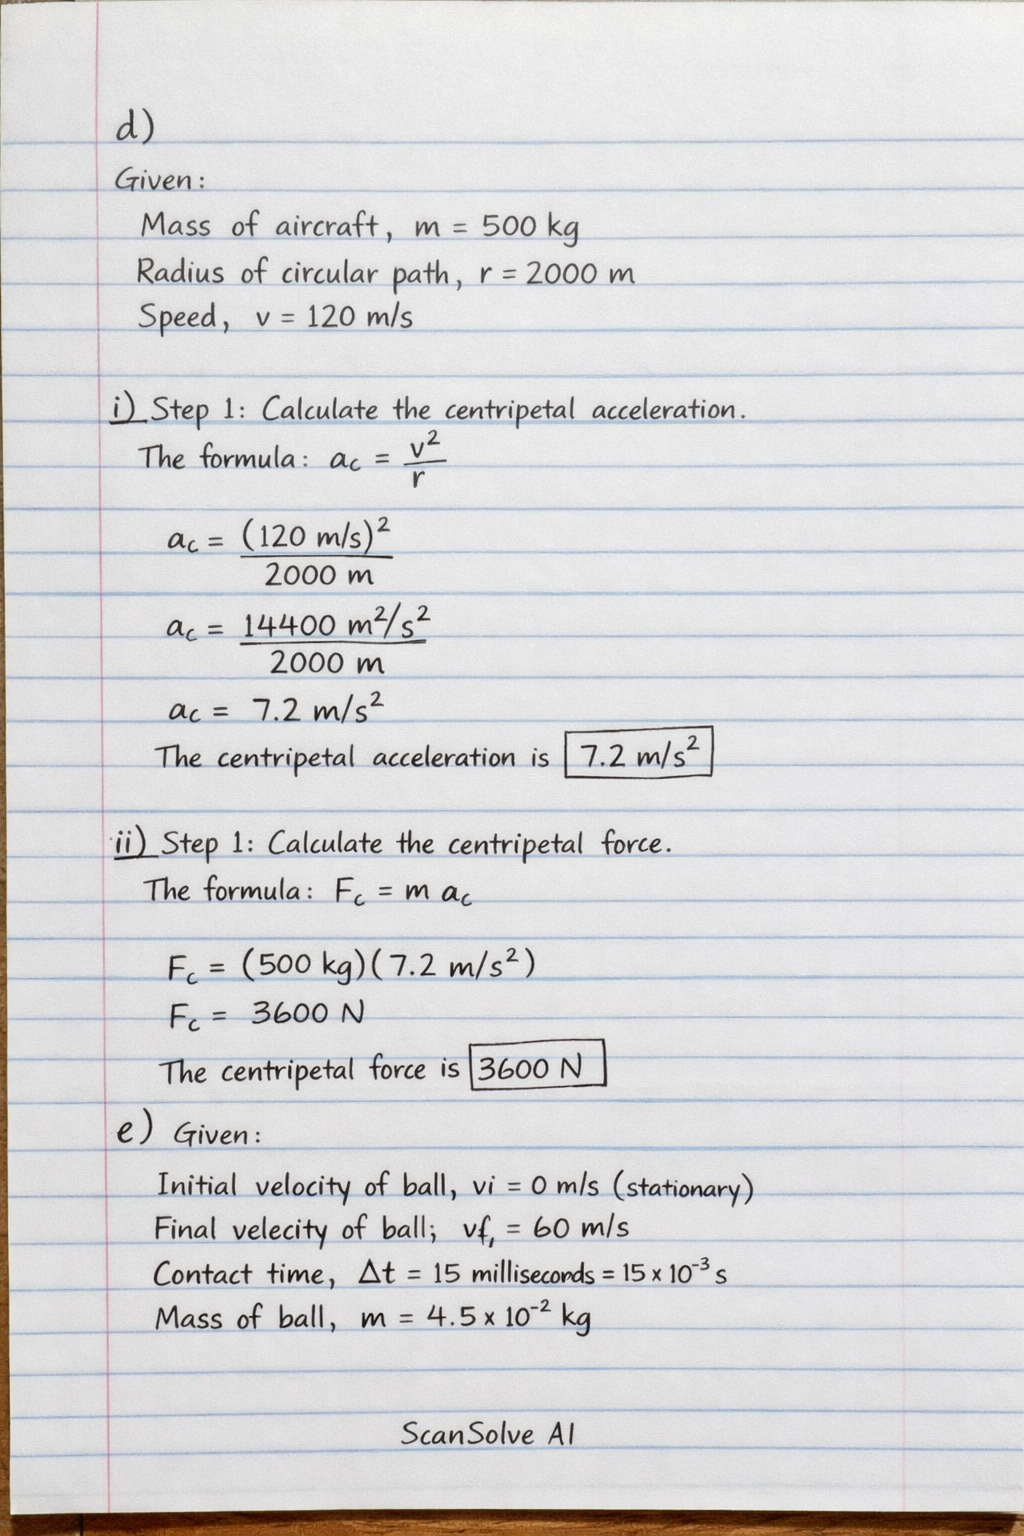 d)
Given:
Mass of aircraft, m = 500 kg
Radius of circular path, r = 2000 m
Speed, v = 120 m/s
i) Step 1: Calculate the centripetal acceleration.
The formula: ac = v²/r
ac = (120 m/s)²/2000 m
ac = 14400 m²/s²/2000 m
ac = 7.2 m/s²
The centripetal acceleration is 7.2 m/s²
ii) Step 1: Calculate the centripetal force.
The formula: Fc = m ac
Fc = (500 kg)(7.2 m/s²)
Fc = 3600 N
The centripetal force is 3600 N
e) Given:
Initial velocity of ball, vi = 0 m/s (stationary)
Final velecity of ball; vf, = 60 m/s
Contact time, Δt = 15 milliseconds = 15 x 10⁻³ s
Mass of ball, m = 4.5 x 10⁻² kg
ScanSolve AI